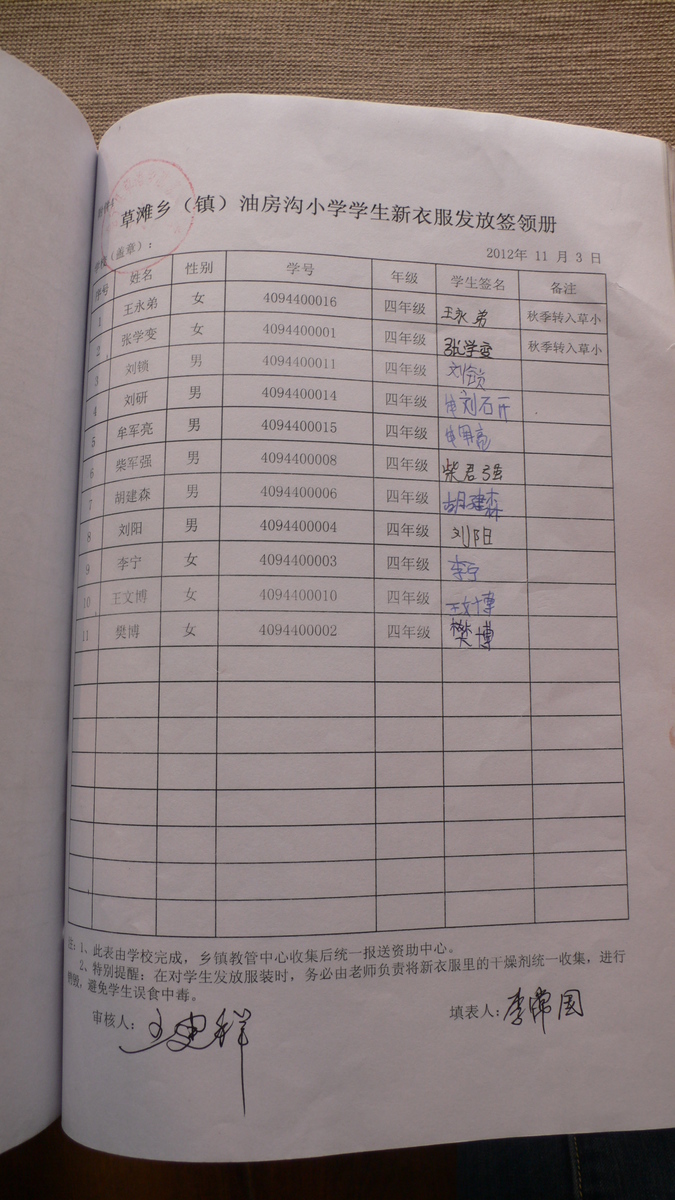 草滩乡（镇）油房沟小学学生新衣服发放签领册
学校（盖章）： 2012年 11 月 3 日
序号 姓名 性别 学号 年级 学生签名 备注
1 王永弟 女 4094400016 四年级 王永弟 秋季转入草小
2 张学变 女 4094400001 四年级 张学变 秋季转入草小
3 刘锁 男 4094400011 四年级 刘锁
4 刘研 男 4094400014 四年级 刘研
5 牟军亮 男 4094400015 四年级
6 柴军强 男 4094400008 四年级 柴君强
7 胡建森 男 4094400006 四年级 胡建森
8 刘阳 男 4094400004 四年级 刘阳
9 李宁 女 4094400003 四年级 李宁
10 王文博 女 4094400010 四年级 王文博
11 樊博 女 4094400002 四年级 樊博
注：1、此表由学校完成，乡镇教管中心收集后统一报送资助中心。
2、特别提醒：在对学生发放服装时，务必由老师负责将新衣服里的干燥剂统一收集，进行
销毁，避免学生误食中毒。
审核人： 填表人：李常国